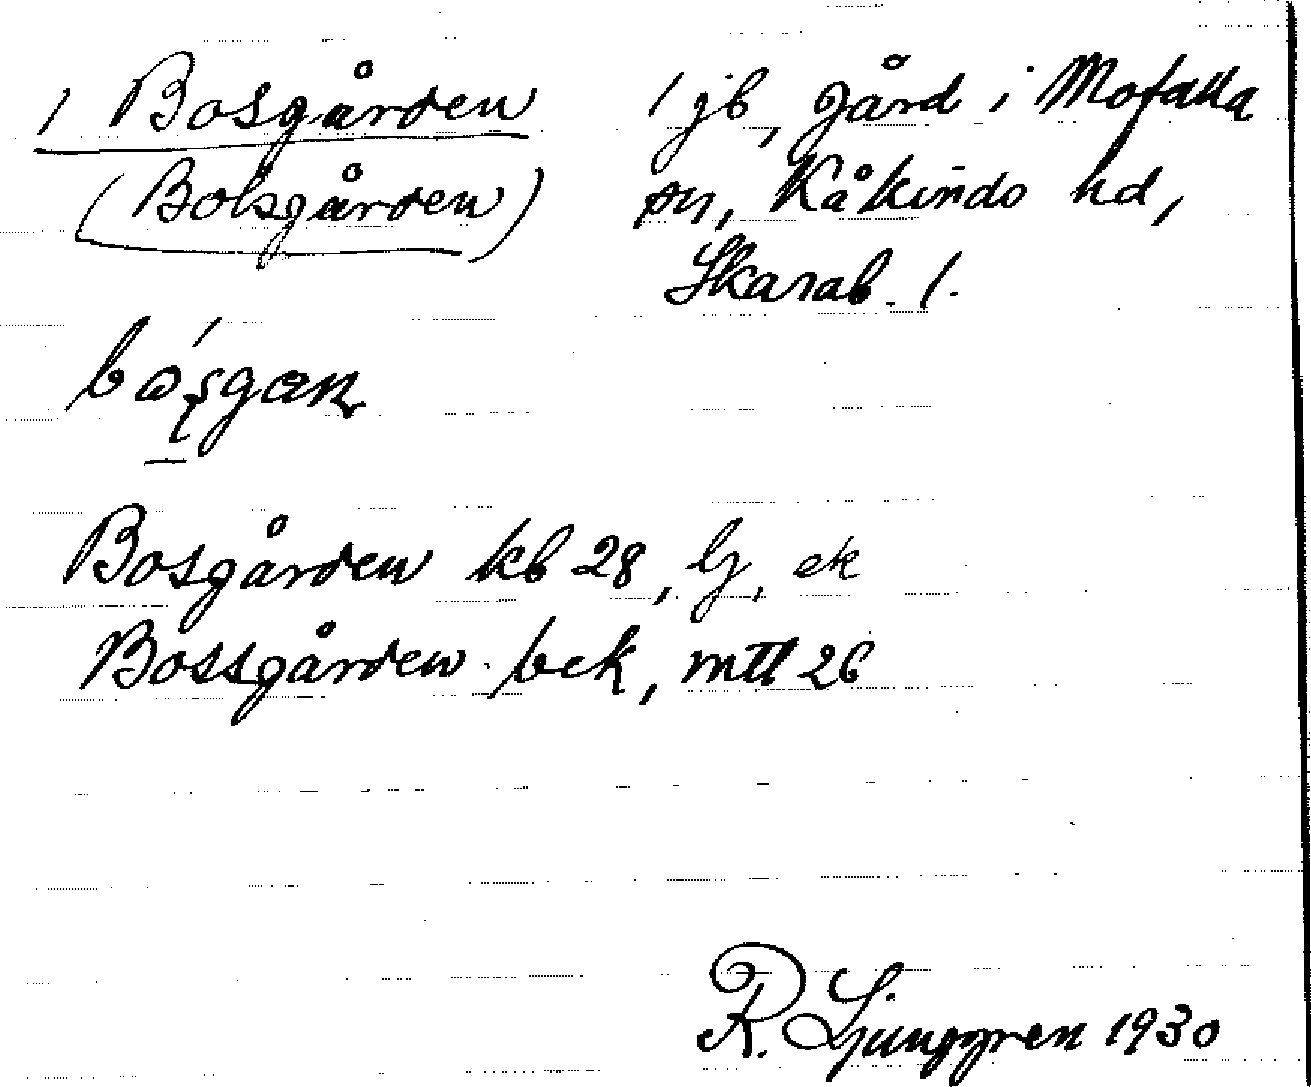 1 Bosgården 1 jb, gård i Mofalla
(Bolsgården) sn, Kåkinds hd,
Skarab. l.
Bosgården kb 28, lj, ek
Bossgården bek, mtl 26
R. Ljunggren 1930